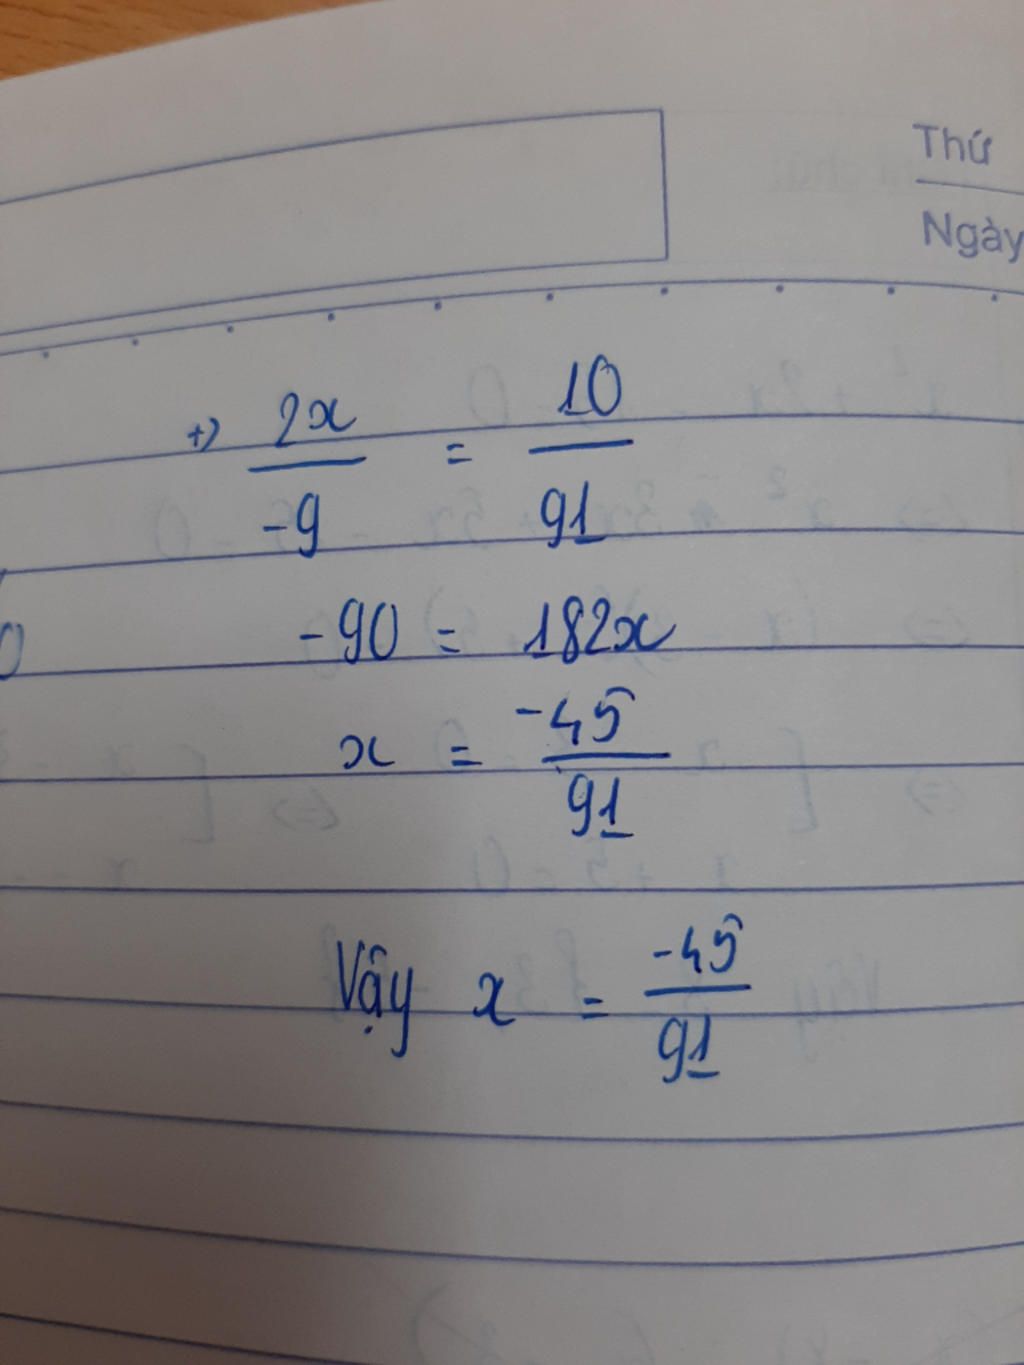 Thứ
Ngày
+) 2x / -9 = 10 / 91
-90 = 182x
x = -45 / 91
Vậy x = -45 / 91